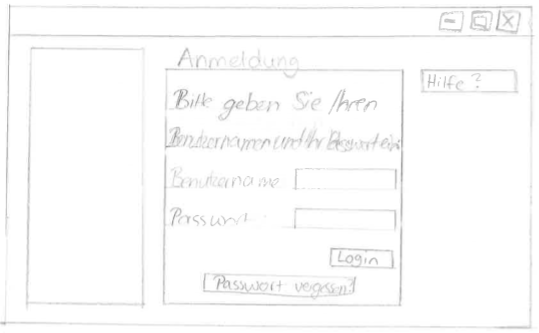 Anmeldung
Hilfe?
Bitte geben Sie Ihren
Benutzernamen und Ihr Passwort ein
Benutzername
Passwort:
Login
Passwort vergessen?